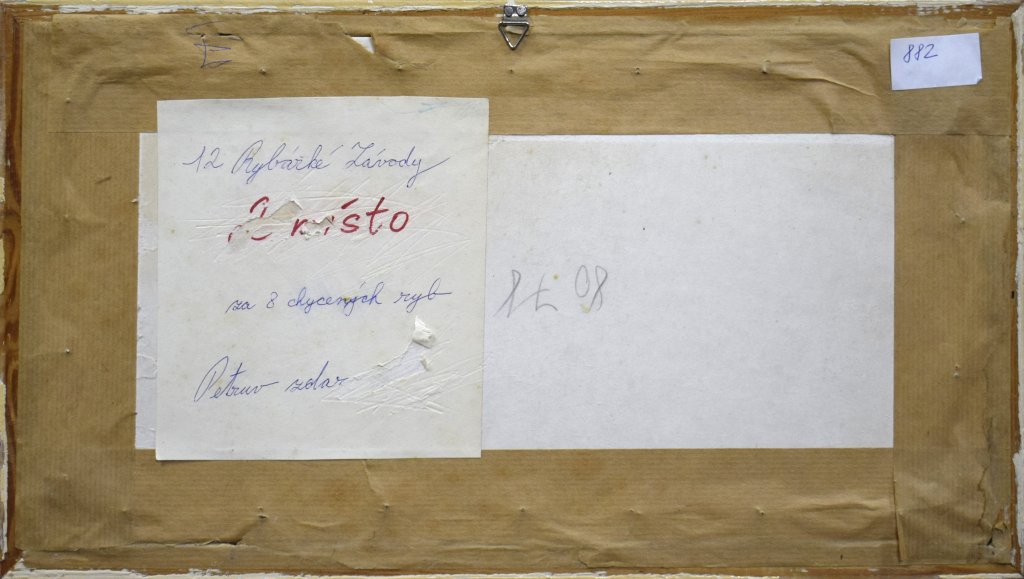 882
12 Rybářké Závody
2 místo
za 8 chycených ryb
Petruv zdar